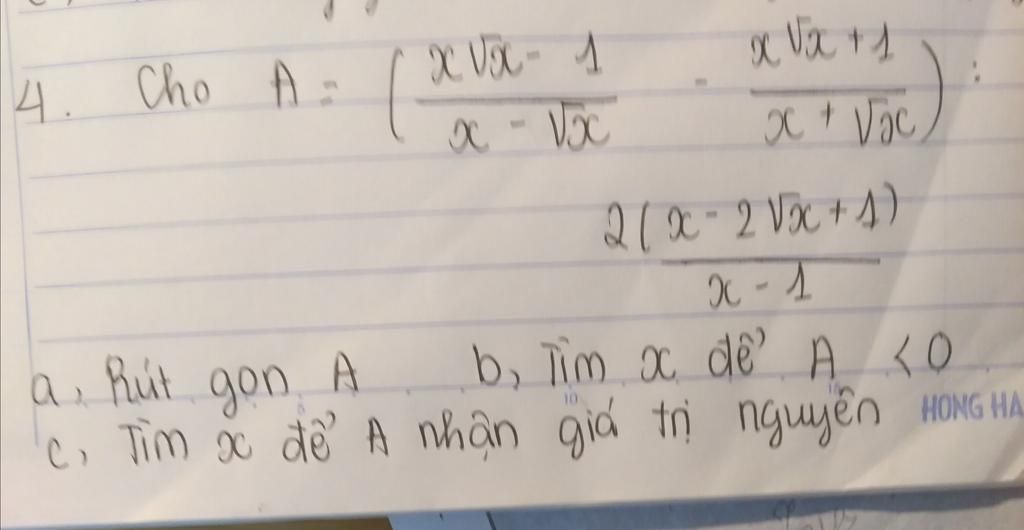 4. Cho A = ( (x√x - 1)/(x - √x) - (x√x + 1)/(x + √x) ) :
2(x - 2√x + 1)/(x - 1)
a, Rút gọn A b, Tìm x để A < 0
c, Tìm x để A nhận giá trị nguyên HONG HA